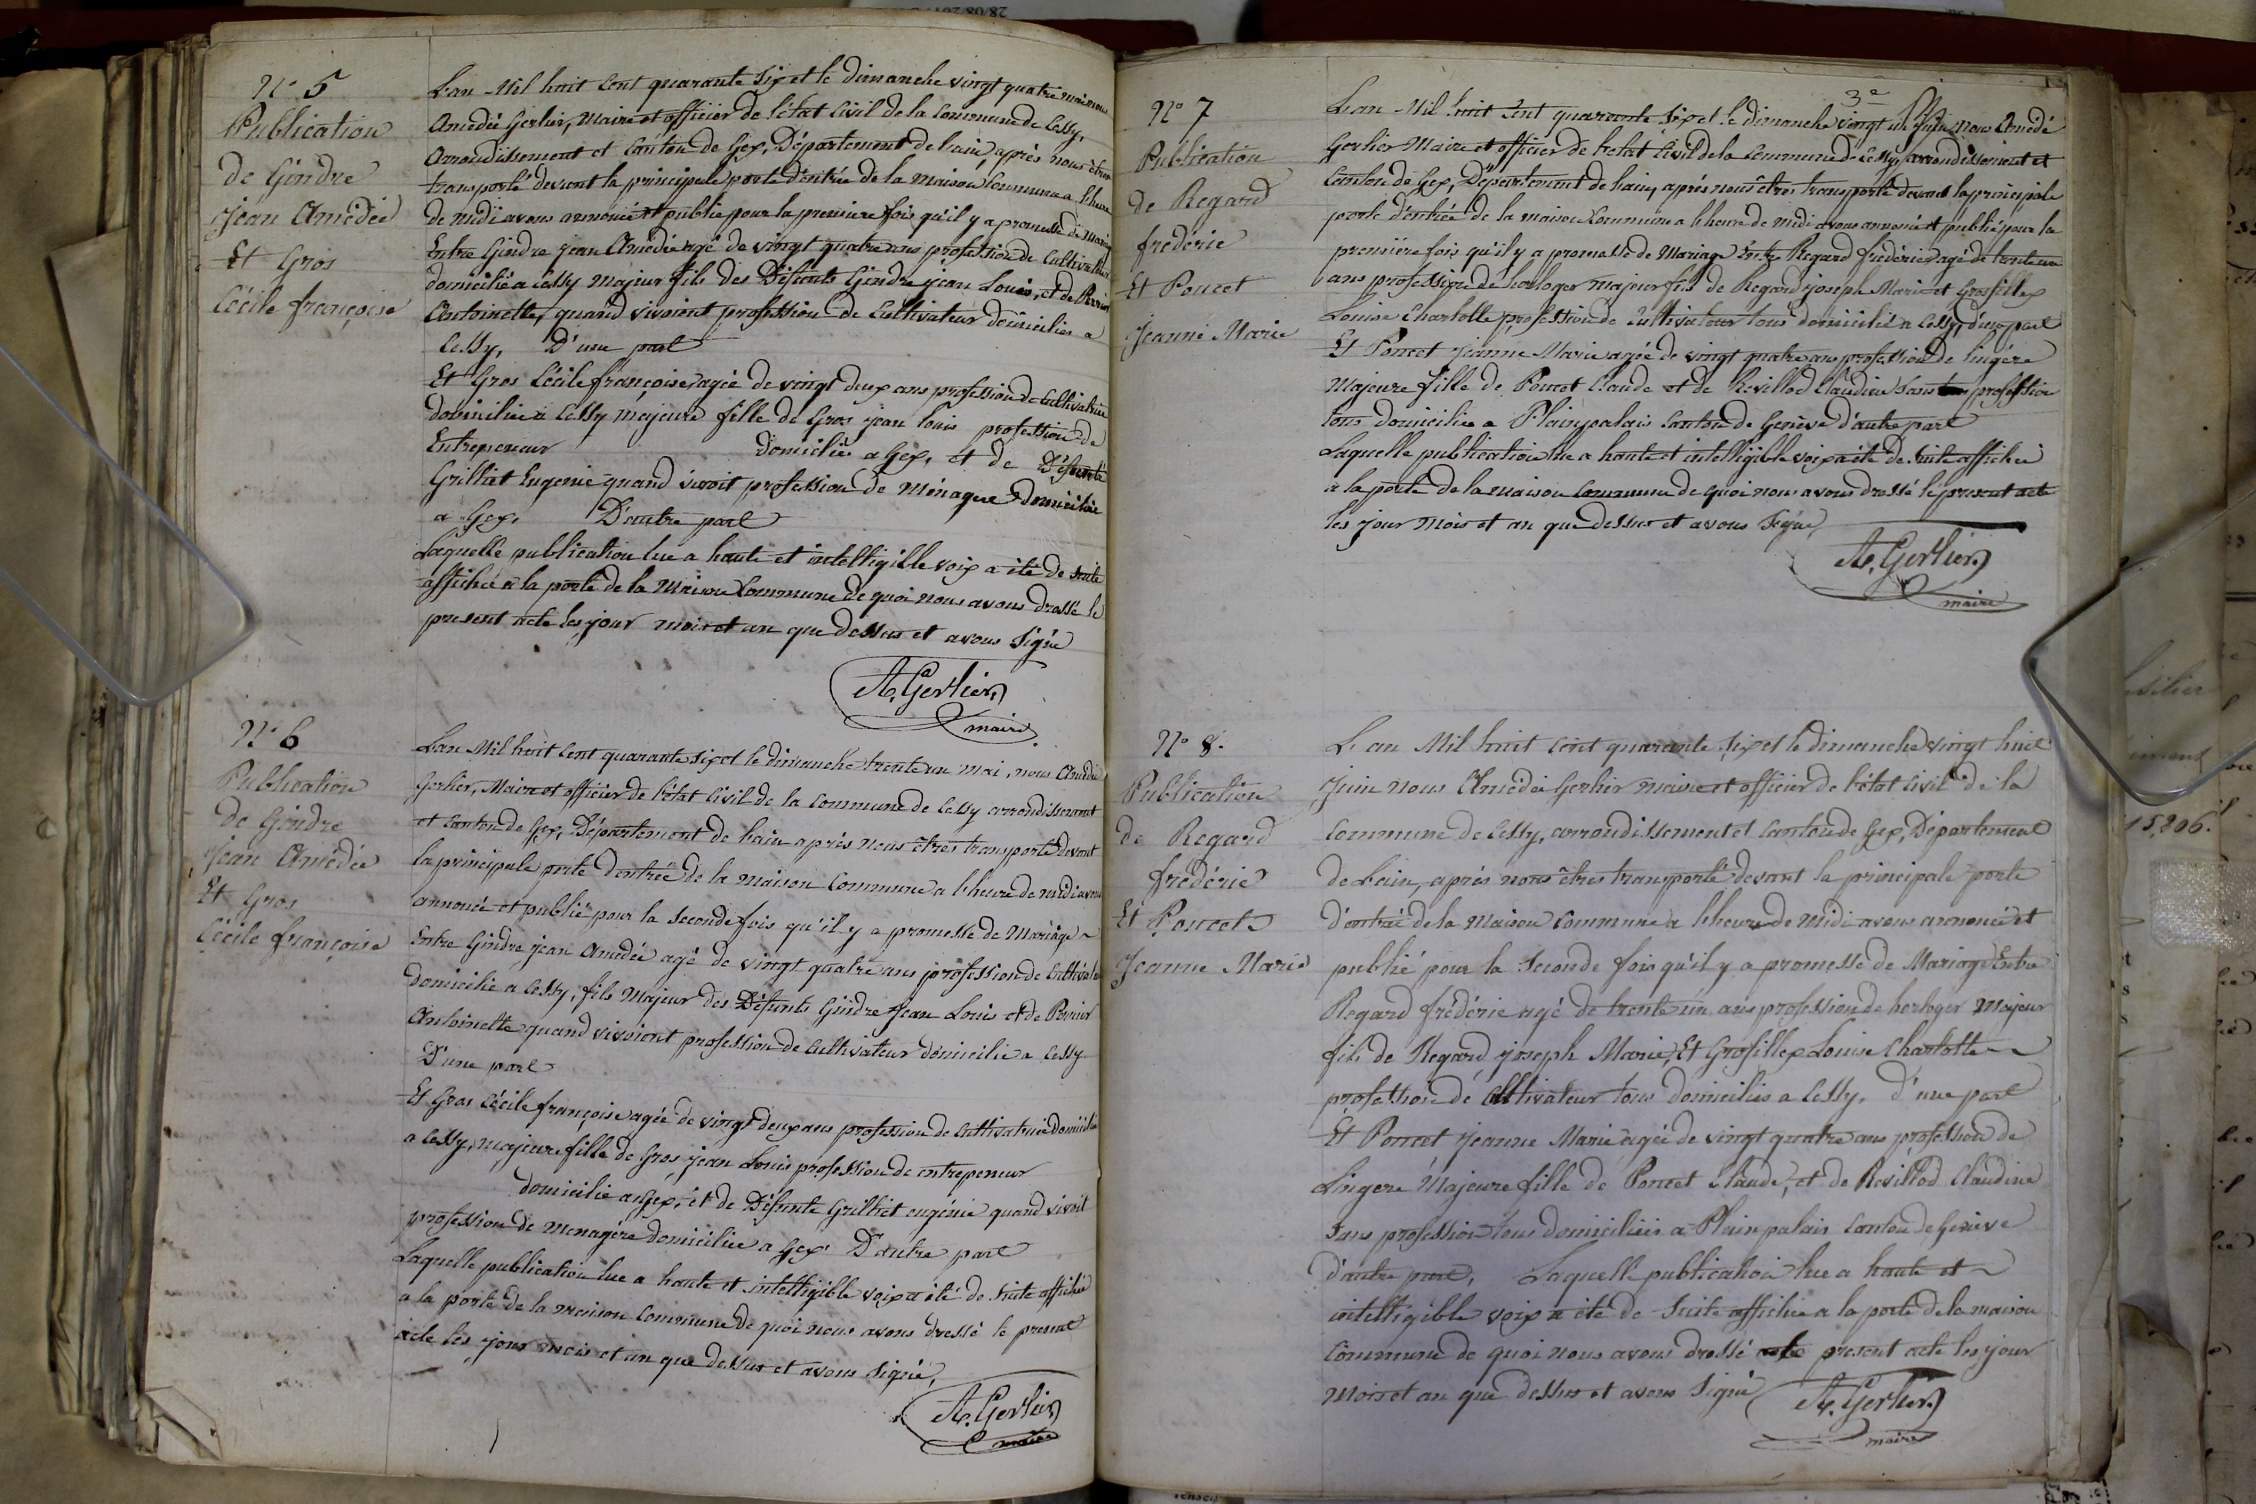 N° 5
Publication
de Gindre
Jean Amédée
Et Gros
Cécile françoise
L'an Mil huit Cent quarante Six et le dimanche vingt quatre mai nous
Amédée Gerlier, Maire et officier de l'état Civil de la Commune de Cessy,
arrondissement et Canton de Gex, Département de l'ain, après nous être
transporté devant la principale porte d'entrée de la Maison Commune a l'heure
de midi avons annoncé et publié pour la premiere fois qu'il y a promesse de Mariage
Entre Gindre Jean Amédée agé de vingt quatre ans profession de Cultivateur
domicilié a Cessy Majeur fils des Défunts Gindre Jean Louis, et de Perrier
Antoinette, quand vivoient profession de Cultivateur domicilies a
Cessy, D'une part
Et Gros Cécile françoise, agée de vingt deux ans profession de Cultivatrice
domiciliée a Cessy majeure fille de Gros Jean Louis profession de
Entrepreneur domicilié a Gex, et de Défunte
Grilliet Eugenie quand vivoit profession de Ménagere domiciliée
a Gex, D'autre part
Laquelle publication lue a haute et intelligible voix a été de suite
affichée a la porte de la Maison Commune de quoi nous avons dressé le
present acte les jour mois et an que dessus et avons Signé
A. Gerlier
maire
N° 6
Publication
de Gindre
Jean Amédée
Et Gros
Cécile françoise
L'an Mil huit Cent quarante Six et le dimanche trente un mai, nous Amédée
Gerlier, Maire et officier de l'état Civil de la Commune de Cessy arrondissement
et Canton de Gex, Département de l'ain après nous êtres transporté devant
la principale porte d'entrée de la Maison Commune a l'heure de midi avons
annoncé et publié pour la Seconde fois qu'il y a promesse de Mariage
Entre Gindre Jean Amédée agé de vingt quatre ans profession de Cultivateur
domicilié a Cessy, fils Majeur des Défunts Gindre Jean Louis et de Perrier
Antoinette quand vivoient profession de Cultivateur domicilie a Cessy
D'une part
Et Gros Cécile françoise agée de vingt deux ans profession de Cultivatrice domiciliée
a Cessy, majeure fille de Gros Jean Louis profession de entrepeneur
domicilié a Gex, et de Défunte Grilliet eugénie quand vivoit
profession de Menagère domiciliée a Gex D'autre part
Laquelle publication lue a haute et intelligible voix a été de Suite affichée
a la porte de la maison Commune de quoi nous avons dressé le present
acte les jour mois et an que dessus et avons Signé,
A. Gerlier
maire
3e
N° 7
Publication
de Regard
frédéric
Et Poncet
Jeanne Marie
L'an Mil huit Cent quarante Six et le dimanche vingt un Juin nous Amédé
Gerlier Maire et officier de l'etat Civil de la Commune de Cessy, arrondissement et
Canton de Gex, Département de l'ain, après nous êtres transporté devant la principale
porte d'entrée de la maison Commune a l'heure de midi avons annoncé et publié pour la
première fois qu'il y a promesse de Mariage Entre Regard frédéric agé de trente un
ans profession de horloger majeur fils de Regard joseph Marie et Grosfillex
Louise Charlotte profession de Cultivateur tous domicilié a Cessy, d'une part
Et Poncet Jeanne Marie agée de vingt quatre ans profession de lingère
Majeure fille de Poncet Claude et de Revillod Claudine Sans profession
tous domicilies a Plainpalais Canton de Genève d'autre part
Laquelle publication lue a haute et intelligible voix a été de Suite affichée
a la porte de la maison Commune de quoi nous avons dressé le present acte
les jour mois et an que dessus et avons Signé
A. Gerlier
maire
N° 8.
Publication
de Regard
frédéric
Et Poncet
Jeanne Marie
L'an Mil huit Cent quarante Six et le dimanche vingt huit
Juin nous Amédée Gerlier maire et officier de l'état Civil de la
Commune de Cessy, arrondissement et Canton de Gex, Département
de L'ain, après nous êtres transporté devant la principale porte
d'entrée de la Maison Commune a l'heure de Midi avons annoncé et
publié pour la Seconde fois qu'il y a promesse de Mariage Entre
Regard frédéric agé de trente un ans profession de horloger Majeur
fils de Regard joseph Marie, Et Grosfillex Louise Charlotte
profession de Cultivateur tous domicilies a Cessy, d'une part
Et Poncet Jeanne Marie agée de vingt quatre ans profession de
Lingere Majeure fille de Poncet Claude, et de Revillod Claudine
Sans profession tous domiciliés a Plainpalais Canton de Genève
d'autre part, Laquelle publication lue a haute et
intelligible voix a été de Suite affichée a la porte de la maison
Commune de quoi nous avons dressé le present acte les jour
Mois et an que dessus et avons Signé
A. Gerlier
maire
15,206.